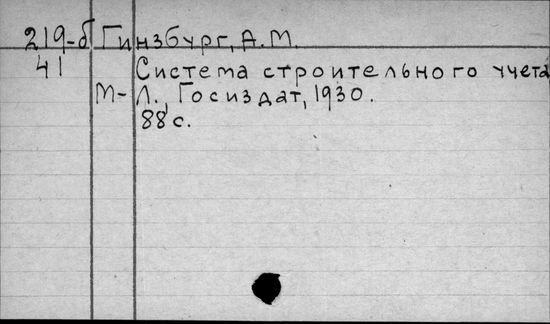 219-б Гинзбург, А.М.
41 Система строительного учета
М-Л., Госиздат, 1930.
88 с.